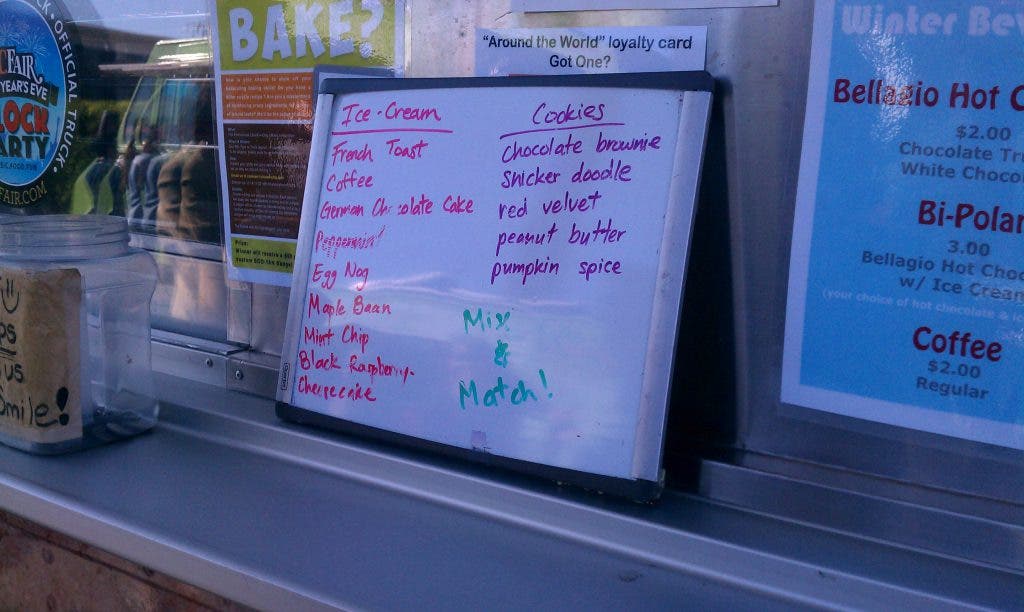 OFFICIAL TRUCK
FAIR
YEAR'S EVE
LOCK
ARTY
FAIR.COM
BAKE?
"Around the World" loyalty card
Got One?
Ice-Cream
French Toast
Coffee
German Chocolate Cake
Peppermint
Egg Nog
Maple Bacon
Mint Chip
Black Raspberry-
Cheesecake
Cookies
Chocolate brownie
Snicker doodle
red velvet
peanut butter
pumpkin spice
Mix
&
Match!
ps
us
Smile!
Winter Bev
Bellagio Hot C
$2.00
Chocolate Tru
White Chocol
Bi-Polar
3.00
Bellagio Hot Choc
w/ Ice Cream
(your choice of hot chocolate & ice
Coffee
$2.00
Regular